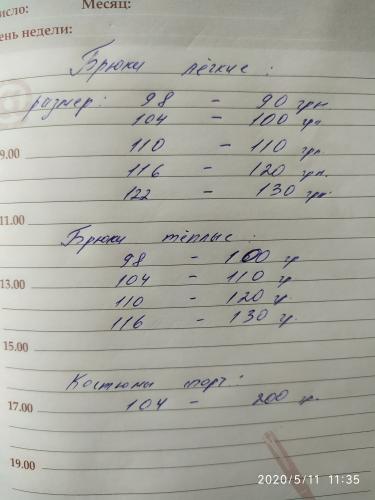 исло: Месяц:
ень недели:
Брюки лёгкие:
размер: 98 - 90 грн
104 - 100 грн
9.00 110 - 110 грн.
116 - 120 грн.
122 - 130 грн.
11.00
Брюки тёплые:
98 - 100 гр
104 - 110 гр
13.00 110 - 120 гр.
116 - 130 гр.
15.00
Костюмы
17.00 104 - 200 гр.
19.00
2020/5/11 11:35